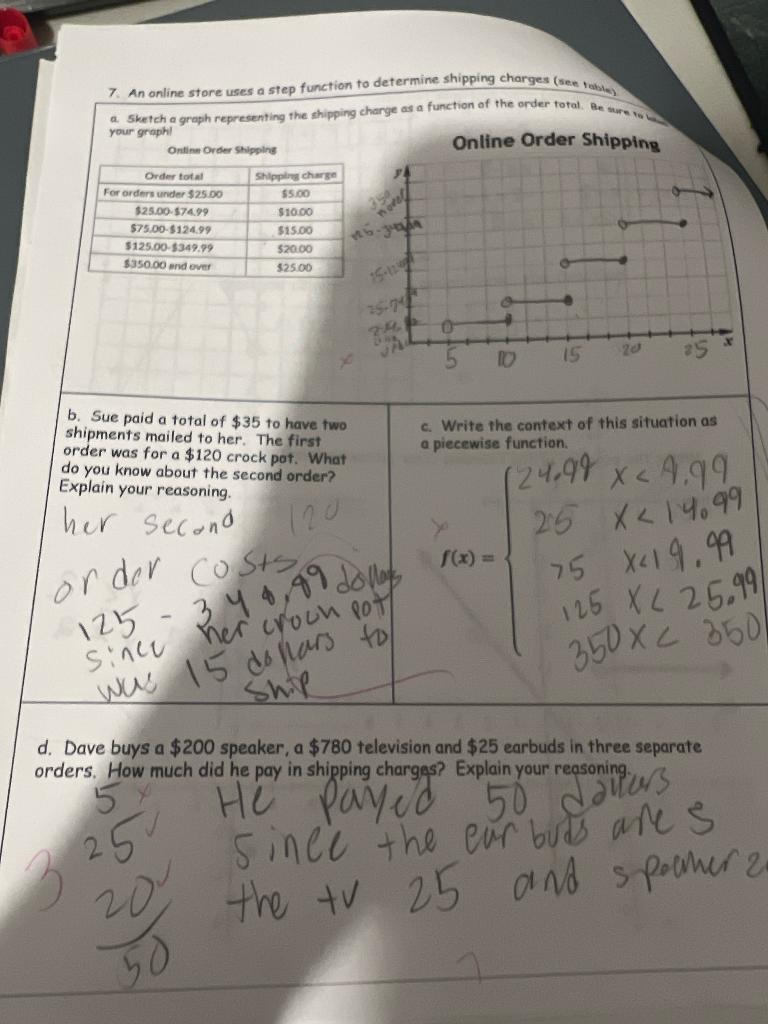 7. An online store uses a step function to determine shipping charges (see table).
a. Sketch a graph representing the shipping charge as a function of the order total. Be sure to
your graph!
Online Order Shipping
Order total Shipping charge
For orders under $25.00 $5.00
$25.00-$74.99 $10.00
$75.00-$124.99 $15.00
$125.00-$349.99 $20.00
$350.00 and over $25.00
Online Order Shipping
y
350
x
5 10 15 20 25
b. Sue paid a total of $35 to have two
shipments mailed to her. The first
order was for a $120 crock pot. What
do you know about the second order?
Explain your reasoning.
her second 120
order costs
125 - 348.99 dollars
since her crock pot
was 15 dollars to
ship
c. Write the context of this situation as
a piecewise function.
f(x) =
24.99 x < 9.99
25 x < 14.99
75 x < 19.99
125 x < 25.99
350 x < 350
d. Dave buys a $200 speaker, a $780 television and $25 earbuds in three separate
orders. How much did he pay in shipping charges? Explain your reasoning.
5 He payed 50 dollars
25 Since the earbuds are 5
3 20 the tv 25 and speaker
50